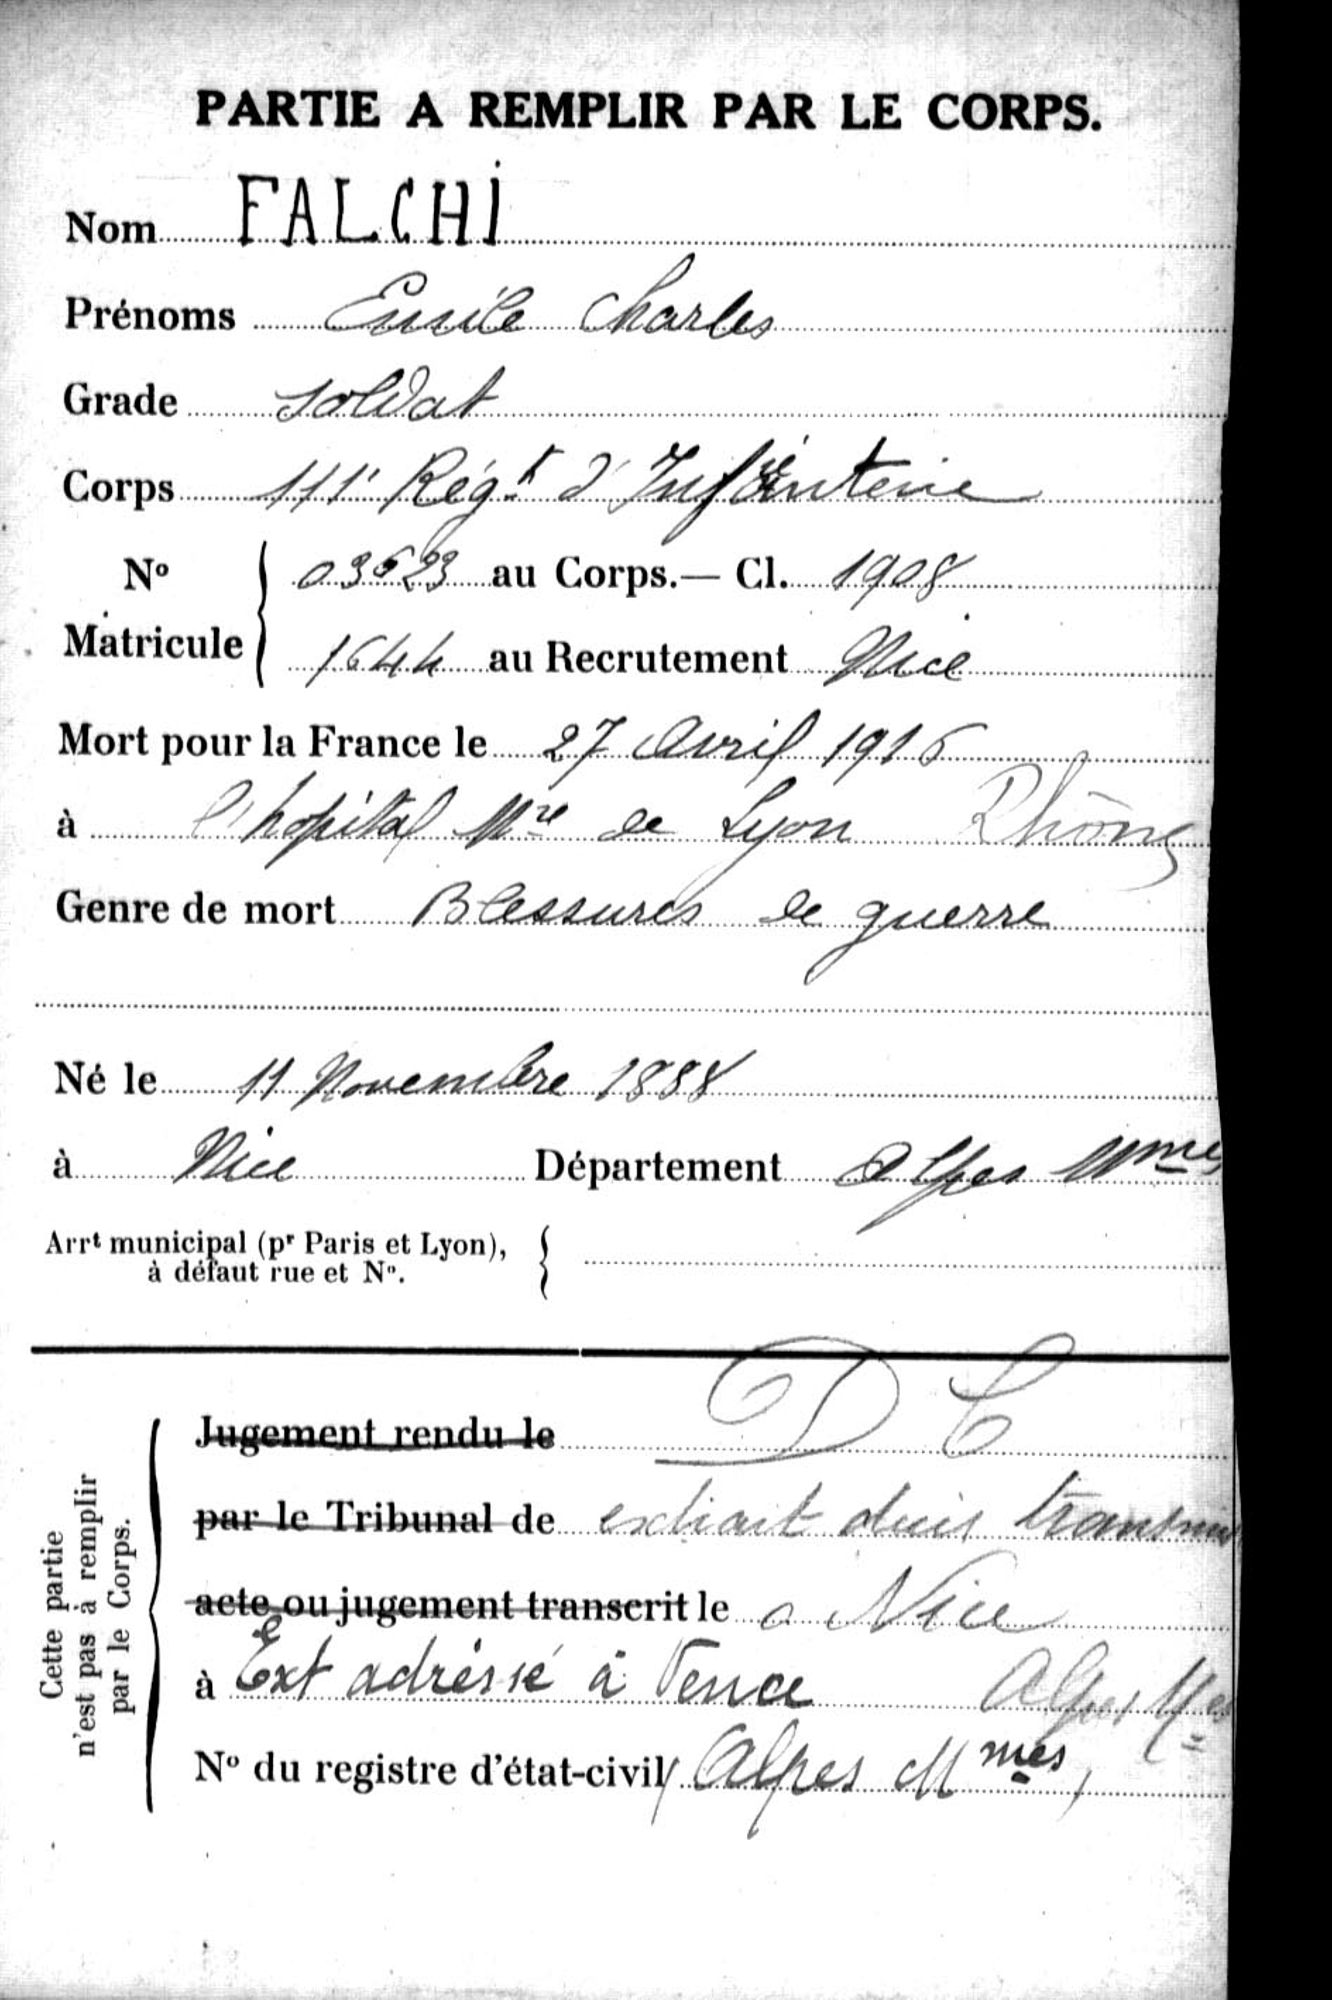 PARTIE A REMPLIR PAR LE CORPS.
Nom FALCHI
Prénoms Emile Charles
Grade Soldat
Corps 111e Régt d'Infanterie
No Matricule
03623 au Corps.— Cl. 1908
1644 au Recrutement Nice
Mort pour la France le 27 Avril 1916
à l'hopital Mre de Lyon Rhône
Genre de mort Blessures de guerre
Né le 11 Novembre 1888
à Nice Département Alpes Mmes
Arrt municipal (pr Paris et Lyon),
à défaut rue et No.
Cette partie
n'est pas à remplir
par le Corps.
Jugement rendu le D C
par le Tribunal de extrait transmis
acte ou jugement transcrit le a Nice
à Ext adréssé à Vence Alpes Mes
No du registre d'état-civil (Alpes Mmes)